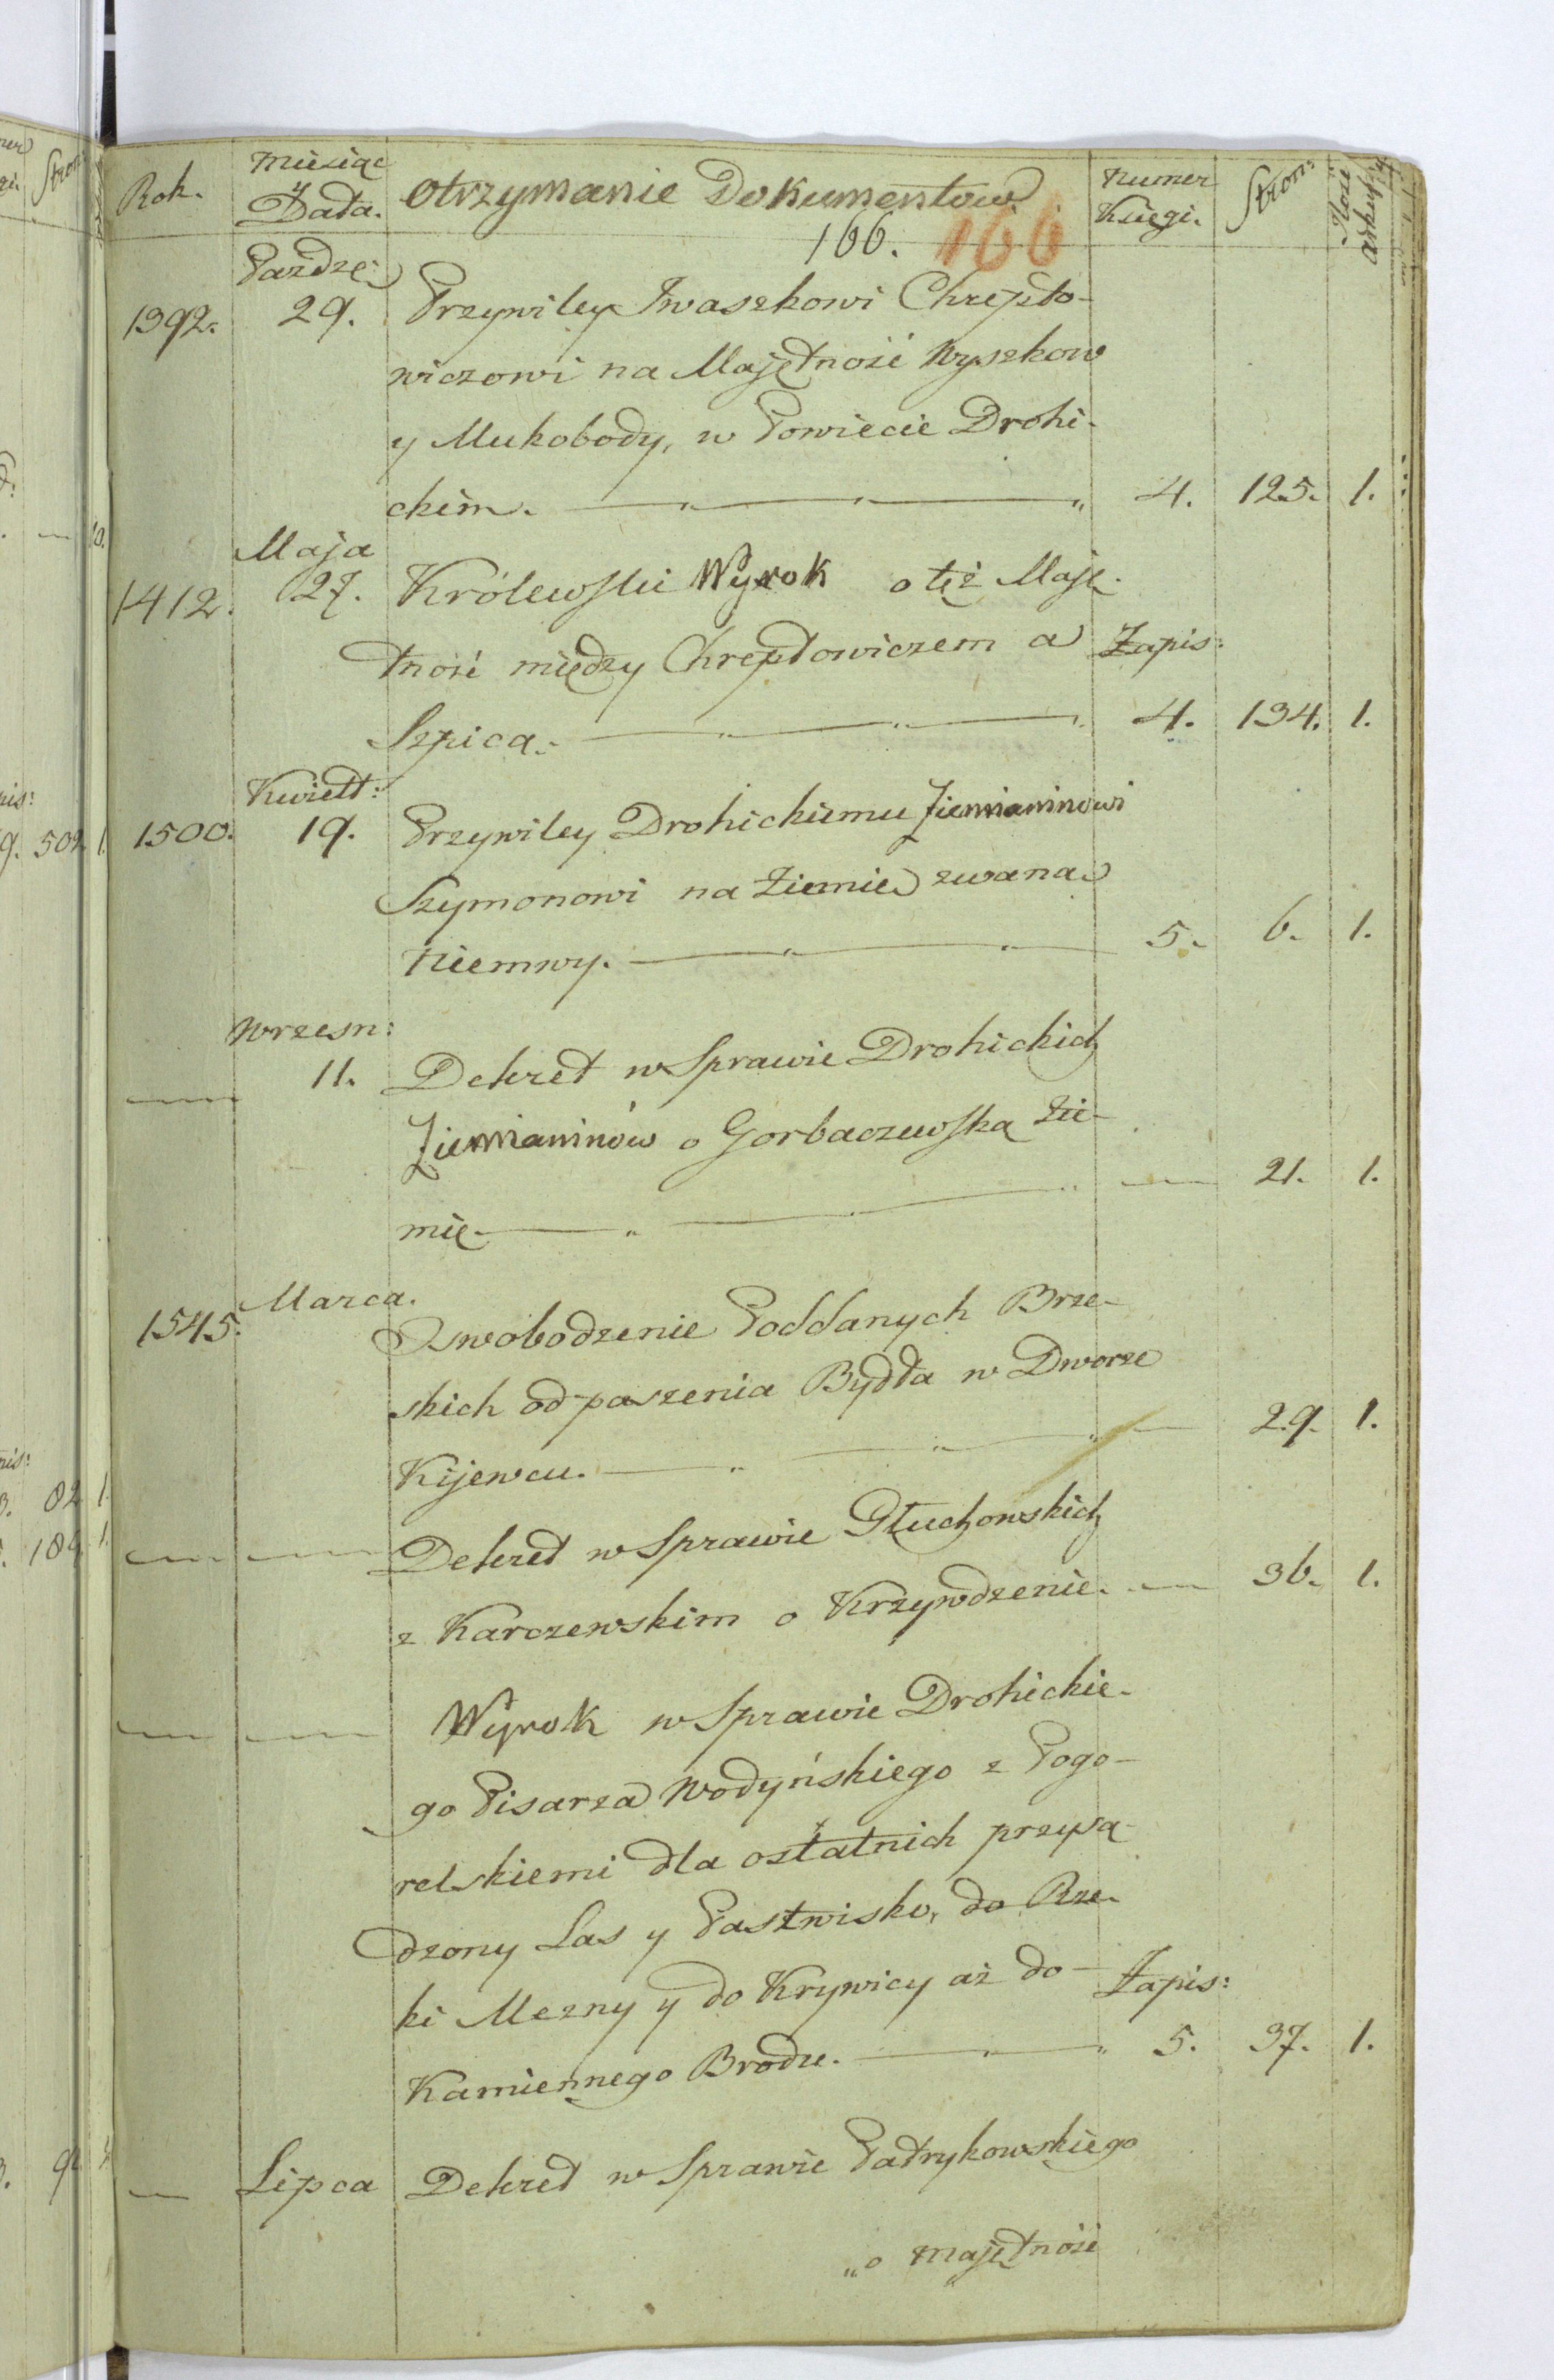 Rok. Miesiąc y Data. Otrzymanie Dokumentow Numer Księgi. Stron: Ilość arkuszy
166. 166
Pazdze:
1392. 29. Przywiley Iwaszkowi Chrepto-
wiczowi na Majętność Wyszkow
y Mukobody, w Powiecie Drohi-
ckim. 4. 125. 1.
Maja
1412. 27. Królewski Wyrok o też Maję-
tność między Chreptowiczem a Zapis:
Szpica. 4. 134. 1.
Kwiett:
1500. 19. Przywiley Drohickiemu Ziemianinowi
Szymonowi na Ziemie zwana
Niemwy. 5. 6. 1.
Wrzesn:
— 11. Dekret w Sprawie Drohickich
Ziemianinów o Gorbaczewską Zie-
mię — 21. 1.
1545. Marca. Zwobodzenie Poddanych Brze-
skich od paszenia Bydła w Dworze
Kijewcu. — 29. 1.
— — Dekret w Sprawie Głuchowskich
z Karczewskim o Krzywdzenie. — 36. 1.
— — Wyrok w Sprawie Drohickie-
go Pisarza Wodyńskiego z Pogo-
relskiemi dla ostatnich przysą-
dzony Las y Pastwisko, do Rze-
ki Mezny y do Krywicy aż do Zapis:
Kamiennego Brodu. 5. 37. 1.
— Lipca Dekret w Sprawie Patrykowskiego
„o majętność